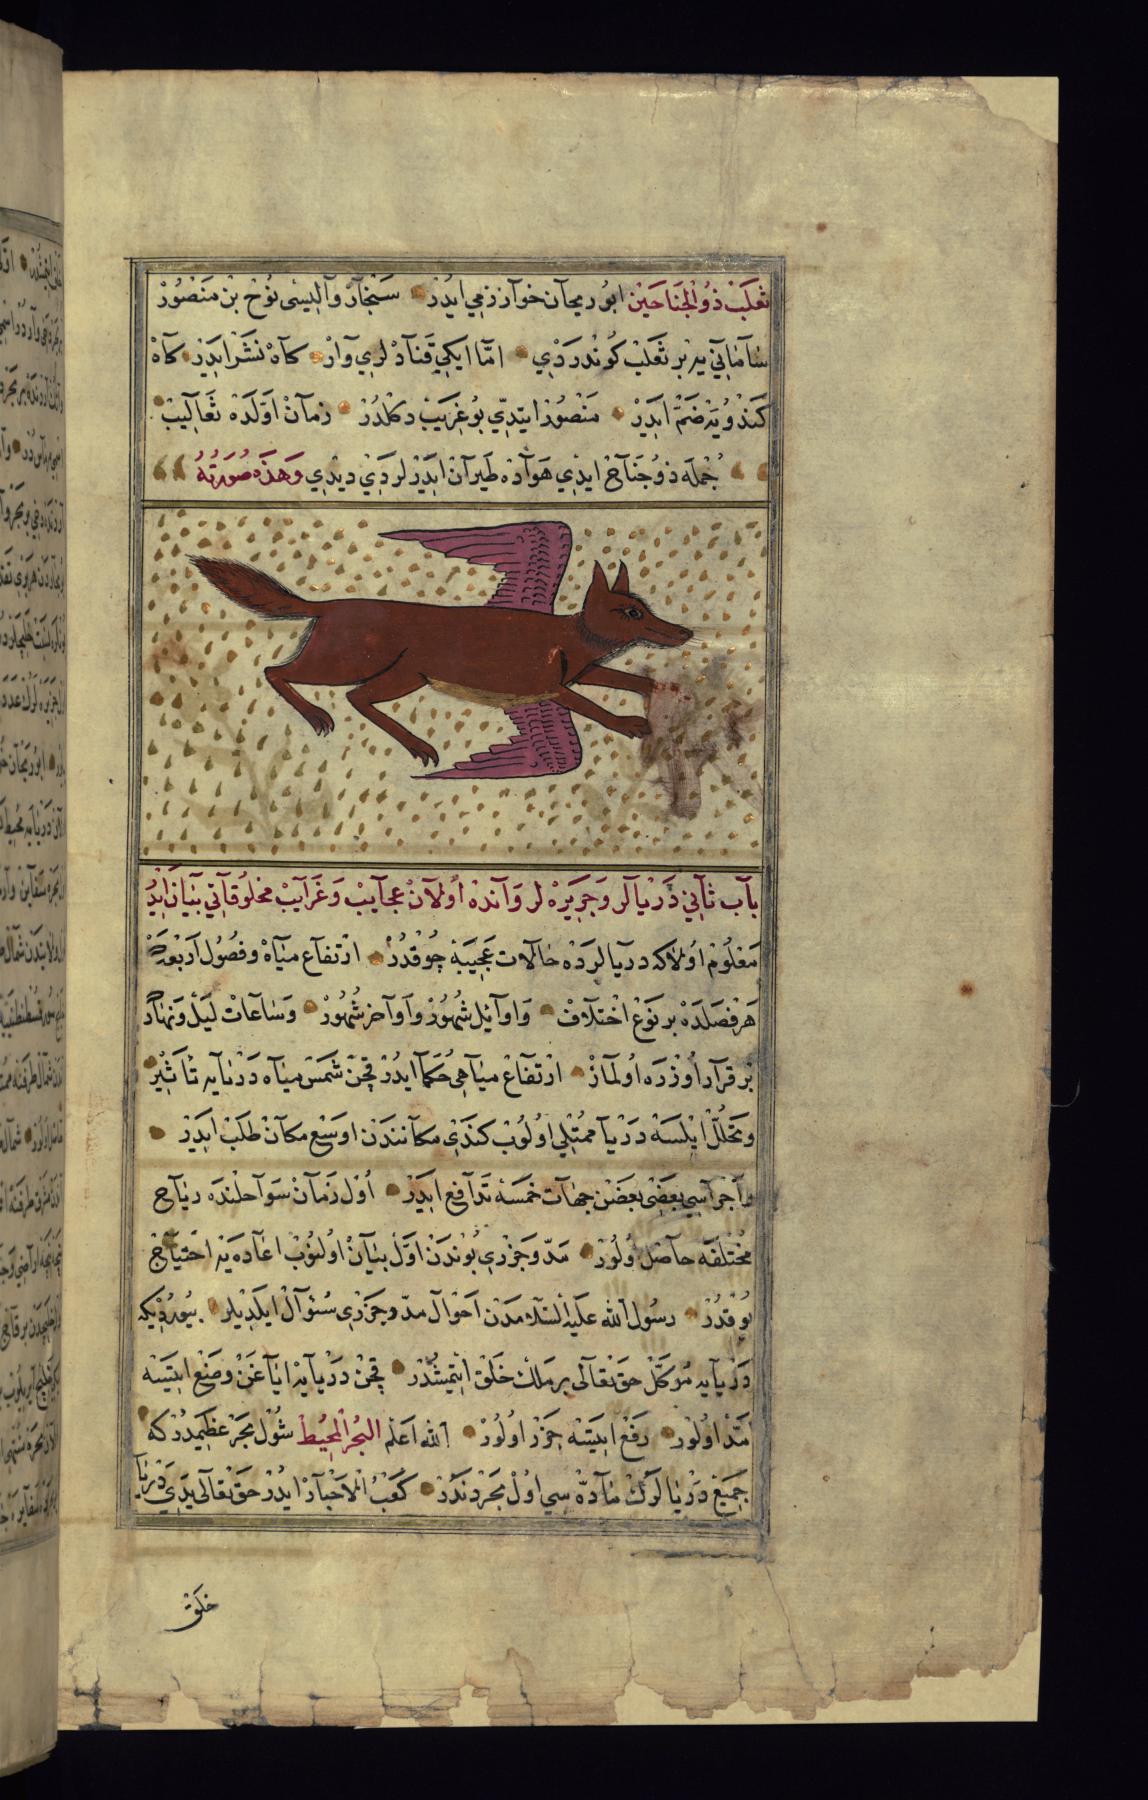 ثعلب ذو الجناحين ابو ريحان خوارزمي ايدر سنجار واليسى نوح بن منصور
سامانى يه بر ثعلب كوندردي امّا ايكي قنادلري وار كاه نشر ايدر كاه
كندويه ضمّ ايدر منصور ايتدي بو غريب دكلدر زمان اوّلده ثعاليب
جمله ذو جناح ايدي هواده طيران ايدرلردي ديدي وهذه صورته
باب ثاني دريالر وجزيره لر وانده اولان عجايب وغرايب مخلوقاتي بيان ايدر
معلوم اولاكه دريالرده حالات عجيبه چوقدر ارتفاع مياه وفصول اربعه ده
هر فصلده بر نوع اختلاف واوائل شهور واواخر شهور وساعات ليل ونهار
بر قرار اوزره اولماز ارتفاع مياهي حكما ايدر قچن شمس مياه دريايه تاثير
وتحلل ايلسه دريا ممتلي اولوب كندي مكانندن اوسع مكان طلب ايدر
واجراسي بعضى بعضن جهات خمسه تدافع ايدر اول زمان سواحلنده رياح
مختلفه حاصل اولور مدّ وجزري بوندن اوّل بيان اولنوب اعاده يه احتياج
يوقدر رسول الله عليه السلامدن احوال مدّ وجزري سئوال ايلديلر بيوردي كه
دريايه موكّل حق تعالى بر ملك خلق ايتمشدر قچن دريايه اياغن وضع ايتسه
مدّ اولور رفع ايتسه جزر اولور الله اعلم البحر المحيط شول بحر عظيمدر كه
جميع دريالرك مادّه سي اول بحردندر كعب الاحبار ايدر حق تعالى يدي دريا
خلق